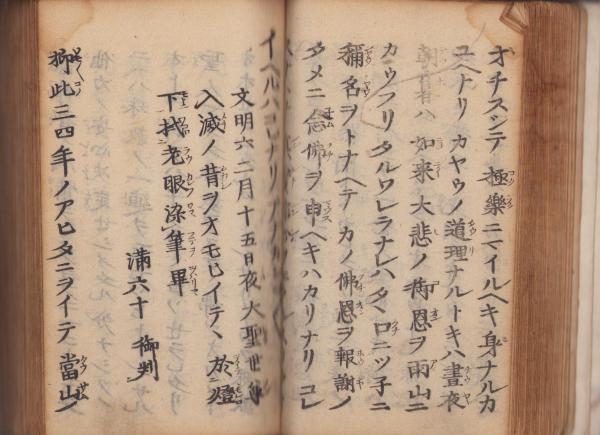 オチスシテ極樂ニマイルヘキ身ナルカ
ユヘナリカヤウノ道理ナルトキハ晝夜
朝暮ハ如来大悲ノ御恩ヲ雨山ニ
カウフリタルワレラナレハタヽロニツ子ニ
稱名ヲトナヘテカノ佛恩ヲ報謝ノ
タメニ念佛ヲ申ヘキハカリナリコレ
イヘルハコレナリ
文明六二月十五日夜大聖世尊
入滅ノ昔ヲオモヒイテヽ於燈
下拭老眼染筆畢
満六十 御判
抑此三四年ノアヒタニヲイテ當山ノ